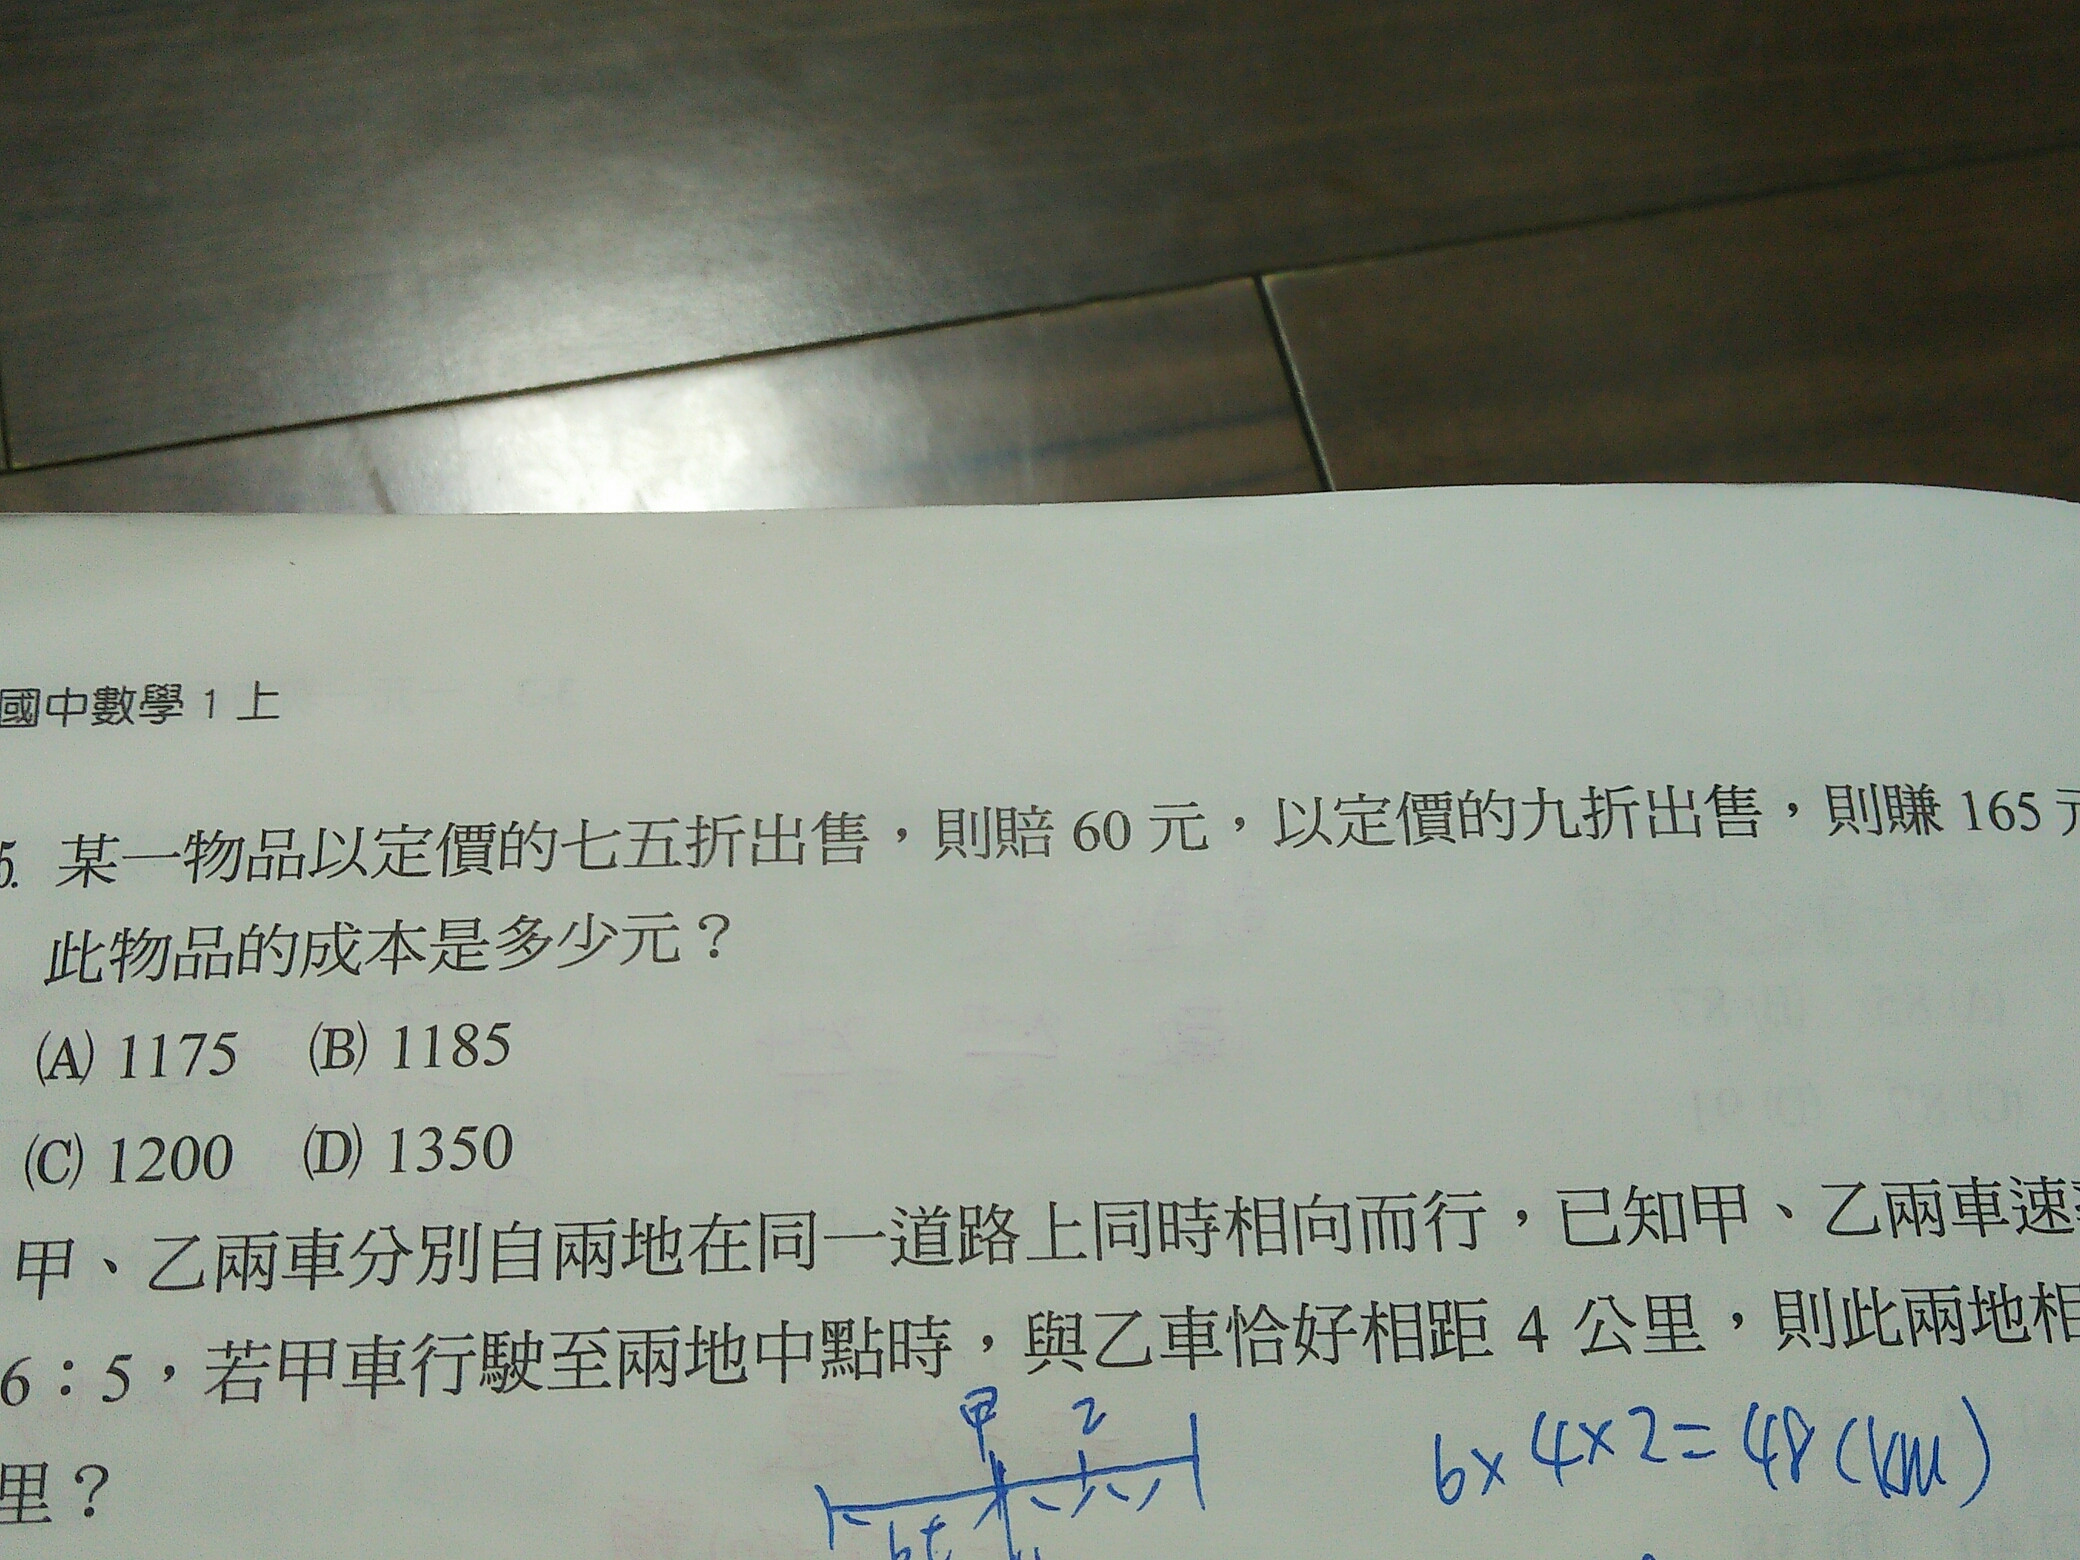 國中數學 1 上
5. 某一物品以定價的七五折出售，則賠 60 元，以定價的九折出售，則賺 165 元
此物品的成本是多少元？
(A) 1175 (B) 1185
(C) 1200 (D) 1350
甲、乙兩車分別自兩地在同一道路上同時相向而行，已知甲、乙兩車速
6：5，若甲車行駛至兩地中點時，與乙車恰好相距 4 公里，則此兩地相
里？
甲 乙
6t
6×4×2=48(km)